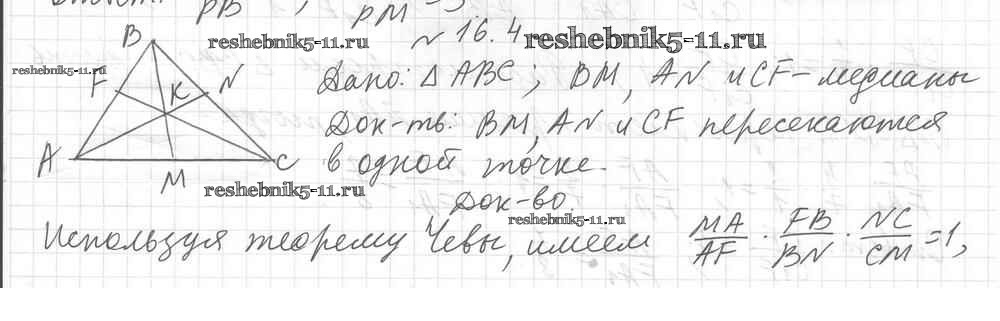 PB ; PM
B reshebnik5-11.ru № 16.4 reshebnik5-11.ru
reshebnik5-11.ru F K N Дано: △ ABC ; BM, AN и CF - медианы
Док-ть: BM, AN и CF пересекаются
A M C в одной точке.
reshebnik5-11.ru Док-во. reshebnik5-11.ru
Используя теорему Чевы, имеем MA/AF · FB/BN · NC/CM = 1,